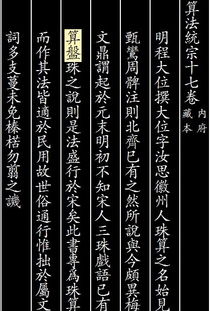 算法統宗十七卷
內府
藏本
明程大位撰大位字汝思徽州人珠算之名始見
甄鸞周髀注則北齊已有之然所說與今頗異梅
文鼎謂起於元末明初不知宋人三珠戲語已有
算盤珠之說則是法盛行於宋矣此書專為珠算
而作其法皆適於民用故世俗通行惟拙於屬文
詞多支蔓未免榛楛勿翦之譏